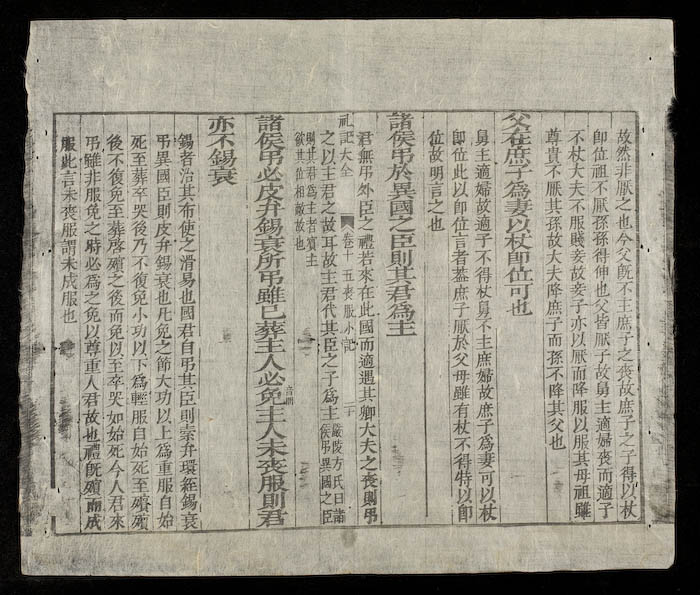 故然非厭之也今父旣不主庶子之喪故庶子之子得以杖
卽位祖不厭孫孫得伸也父皆厭子故舅主適婦喪而適子
不杖大夫不服賤妾故妾子亦以厭而降服以服其母祖雖
尊貴不厭其孫故大夫降庶子而孫不降其父也
父在庶子爲妻以杖卽位可也
舅主適婦故適子不得杖舅不主庶婦故庶子爲妻可以杖
卽位此以卽位言者蓋庶子厭於父母雖有杖不得特以卽
位故明言之也
諸侯弔於異國之臣則其君爲主
君無弔外臣之禮若來在此國而適遇其卿大夫之喪則弔
禮記大全 卷十五喪服小記
之以主君之故耳故主君代其臣之子爲主嚴陵方氏曰諸
侯弔異國之臣
則其君爲主者賓主
欲其位相敵故也
諸侯弔必皮弁錫衰所弔雖已葬主人必免音問主人未喪服則君
亦不錫衰
錫者治其布使之滑易也國君自弔其臣則素弁環絰錫衰
弔異國臣則皮弁錫衰也凡免之節大功以上爲重服自始
死至葬卒哭後乃不復免小功以下爲輕服自始死至殯殯
後不復免至葬啓殯之後而免以至卒哭如始死今人君來
弔雖非服免之時必爲之免以尊重人君故也禮旣殯而成
服此言未喪服謂未成服也